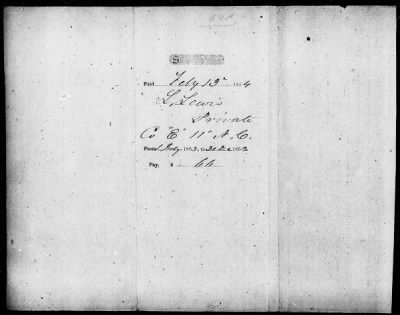 Paid Feby 13" 1864
L. Lewis
Private
Co "E" 11" N. C.
From 1 July 1863, to 31 Dec 1863
Pay, $ 66